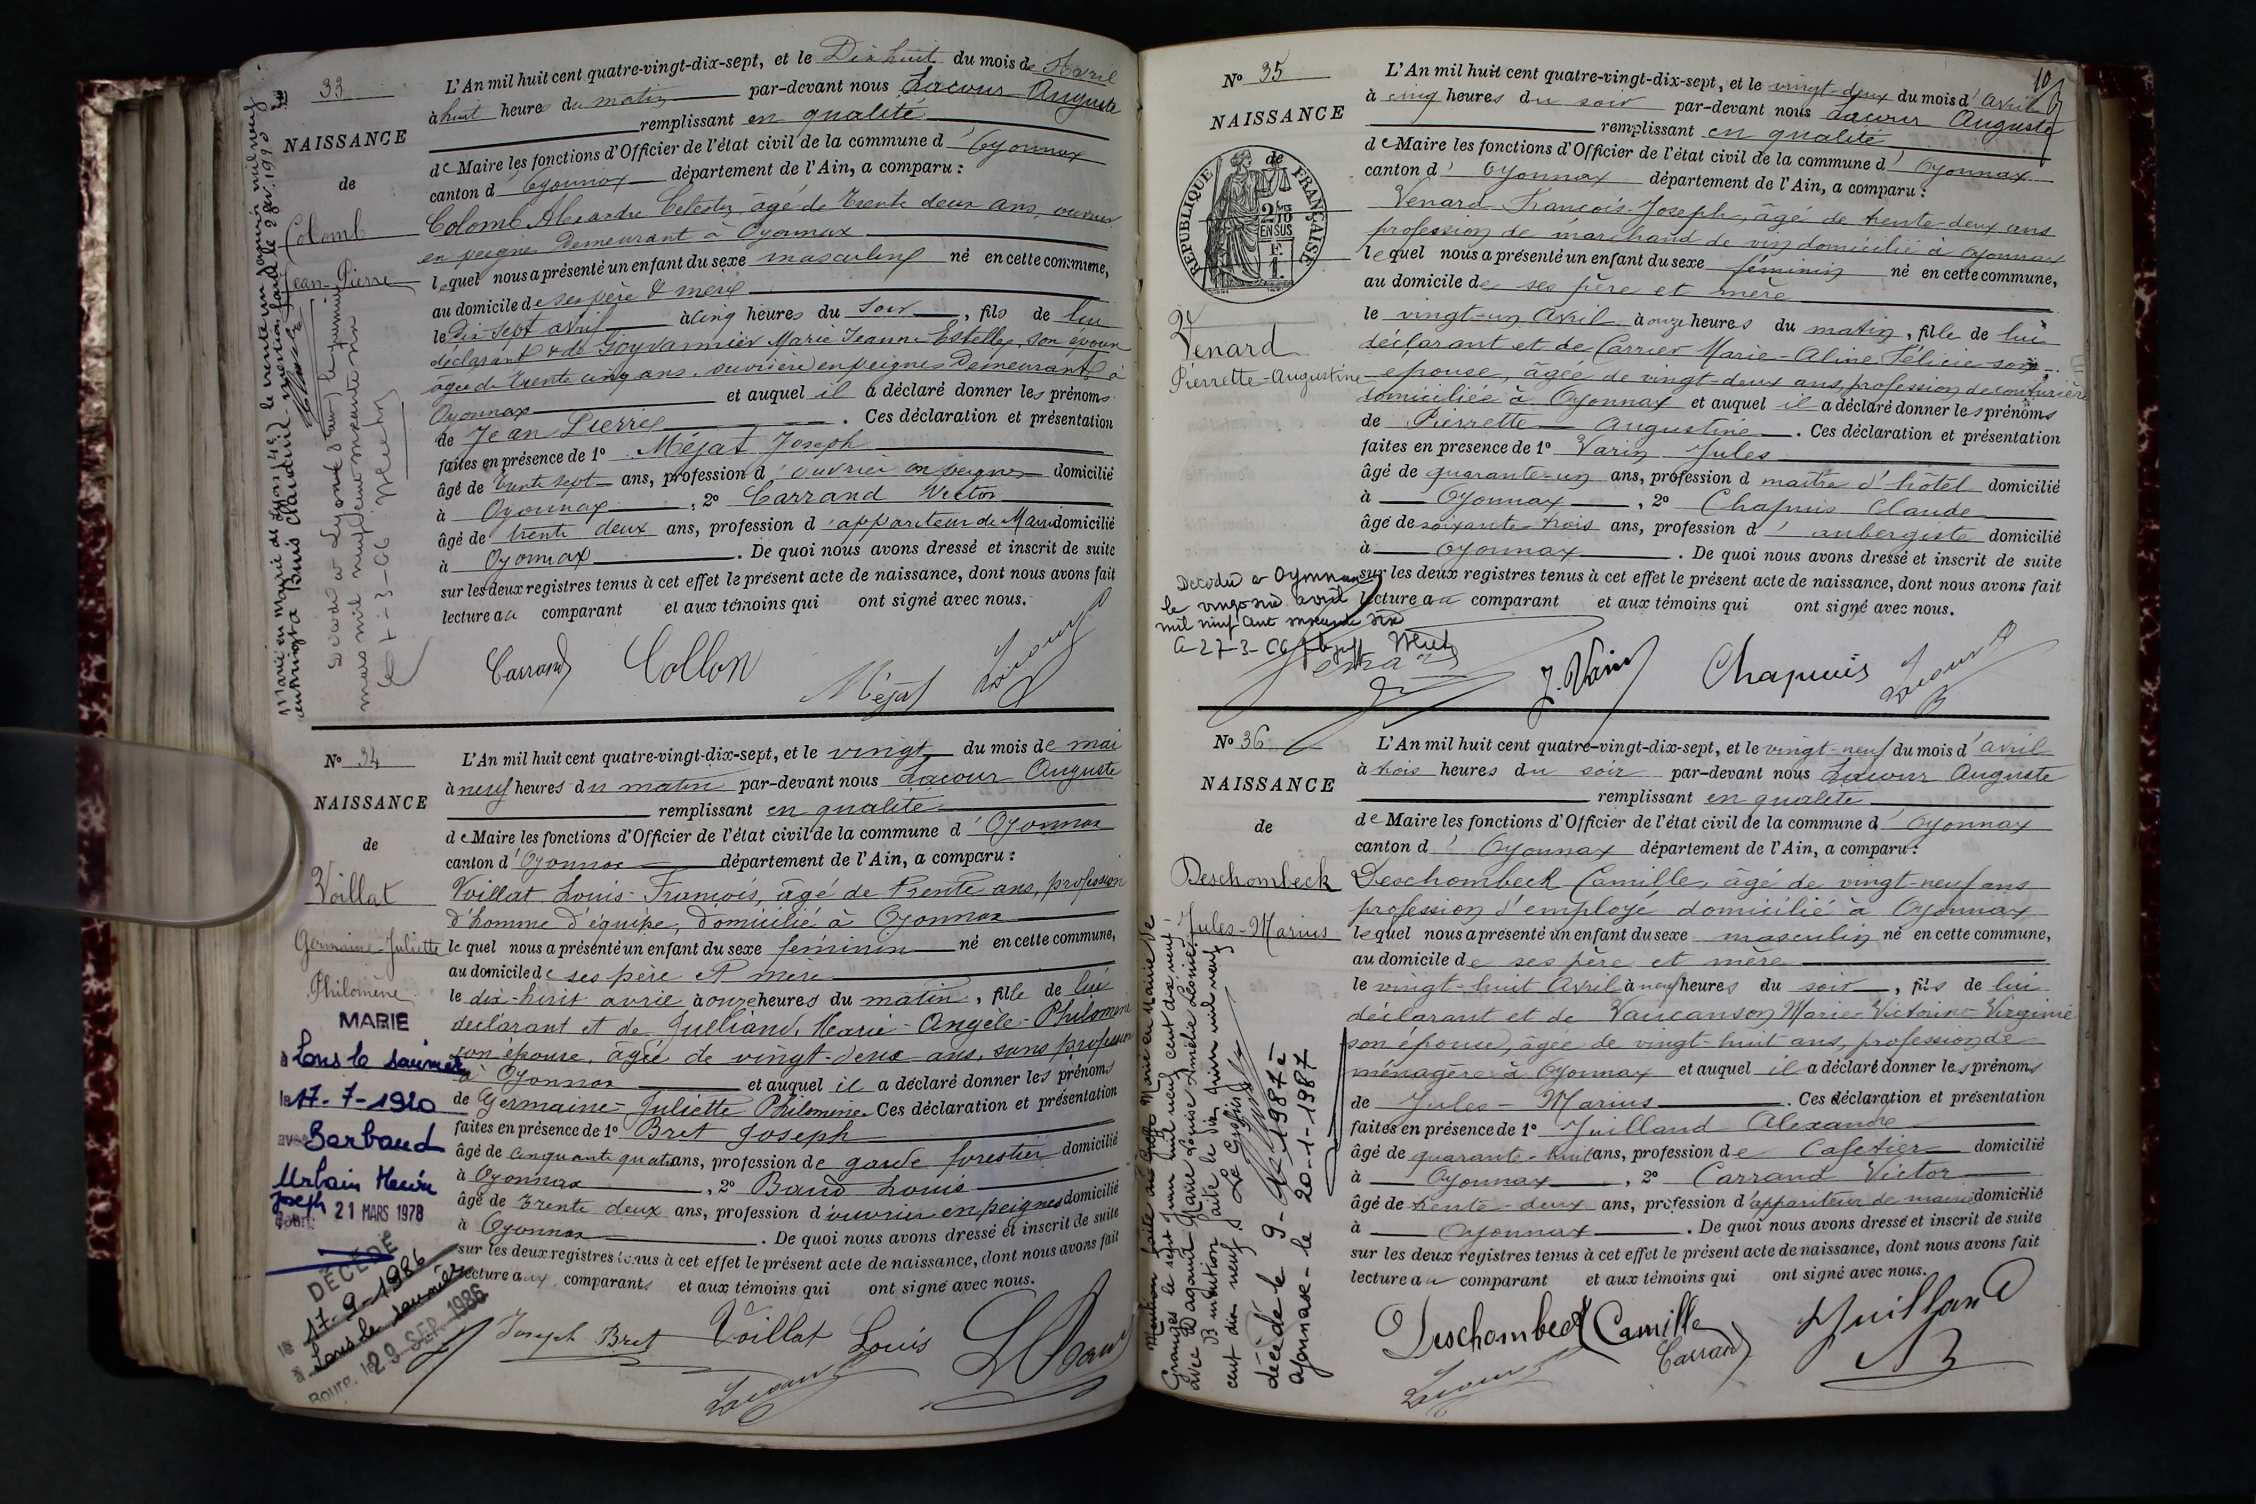 33
NAISSANCE
de
Colomb
Jean-Pierre
L'An mil huit cent quatre-vingt-dix-sept, et le Dix huit du mois de Avril
à huit heures du matin par-devant nous Lacour Auguste
remplissant en qualité
de Maire les fonctions d'Officier de l'état civil de la commune d'Oyonnax
canton d'Oyonnax département de l'Ain, a comparu :
Colomb Alexandre Célestin, âgé de trente deux ans, ouvrier
en peignes demeurant à Oyonnax
lequel nous a présenté un enfant du sexe masculin né en cette commune,
au domicile de ses père & mère
le Dix sept avril à cinq heures du soir, fils de lui
déclarant & de Goyvannier Marie Jeanne Estelle, son épouse
âgée de trente cinq ans, ouvrière en peignes demeurant à
Oyonnax et auquel il a déclaré donner les prénoms
de Jean Pierre. Ces déclaration et présentation
faites en présence de 1º Méjat Joseph
âgé de trente sept ans, profession d'ouvrier en peignes domicilié
à Oyonnax, 2º Carrand Victor
âgé de trente deux ans, profession d'appariteur de Mairie domicilié
à Oyonnax. De quoi nous avons dressé et inscrit de suite
sur les deux registres tenus à cet effet le présent acte de naissance, dont nous avons fait
lecture au comparant et aux témoins qui ont signé avec nous.
Carrand Collon Méjat Lacour
Marié en mairie de Lyon (4e) le trente un janvier mil neuf
avec Buis Claudine mention faite le 2 fév. 1920
Décédé à Lyon
mars mil neuf cent soixante six
Nº 34
NAISSANCE
de
Voillat
Germaine-Juliette
Philomène
MARIE
à Lons le saunier
le 17-7-1920
avec Barbaud
Urbain Henri
Joseph
21 MARS 1978
DÉCÉDÉ
le 17-9-1986
à Lons le saunier
Bourg, le 29 SEP. 1986
L'An mil huit cent quatre-vingt-dix-sept, et le vingt du mois de mai
à neuf heures du matin par-devant nous Lacour Auguste
remplissant en qualité
de Maire les fonctions d'Officier de l'état civil de la commune d'Oyonnax
canton d'Oyonnax département de l'Ain, a comparu :
Voillat Louis-François, âgé de trente ans, profession
d'homme d'équipe, domicilié à Oyonnax
lequel nous a présenté un enfant du sexe féminin né en cette commune,
au domicile de ses père et mère
le dix-huit avril à onze heures du matin, fille de lui
déclarant et de Julliand, Marie-Angèle-Philomène
son épouse, âgée de vingt-deux ans, sans profession
à Oyonnax et auquel il a déclaré donner les prénoms
de Germaine-Juliette Philomène. Ces déclaration et présentation
faites en présence de 1º Bret Joseph
âgé de cinquante quatre ans, profession de garde forestier domicilié
à Oyonnax, 2º Baud Louis
âgé de trente deux ans, profession d'ouvrier en peignes domicilié
à Oyonnax. De quoi nous avons dressé et inscrit de suite
sur les deux registres tenus à cet effet le présent acte de naissance, dont nous avons fait
lecture aux comparants et aux témoins qui ont signé avec nous.
Joseph Bret Voillat Louis L Baud
Lacour
10
Nº 35
NAISSANCE
de
RÉPUBLIQUE FRANÇAISE
2/10
EN SUS
F.
1.
Venard
Pierrette-Augustine
L'An mil huit cent quatre-vingt-dix-sept, et le vingt-deux du mois d'avril
à cinq heures du soir par-devant nous Lacour Auguste
remplissant en qualité
de Maire les fonctions d'Officier de l'état civil de la commune d'Oyonnax
canton d'Oyonnax département de l'Ain, a comparu :
Venard François-Joseph, âgé de trente-deux ans
profession de marchand de vin domicilié à Oyonnax
lequel nous a présenté un enfant du sexe féminin né en cette commune,
au domicile de ses père et mère
le vingt-un Avril à onze heures du matin, fille de lui
déclarant et de Carrier Marie-Aline Félicie son
épouse, âgée de vingt-deux ans, profession de couturière
domiciliée à Oyonnax et auquel il a déclaré donner les prénoms
de Pierrette Augustine. Ces déclaration et présentation
faites en présence de 1º Varin Jules
âgé de quarante-un ans, profession d maître d'hôtel domicilié
à Oyonnax, 2º Chapuis Claude
âgé de soixante-trois ans, profession d'aubergiste domicilié
à Oyonnax. De quoi nous avons dressé et inscrit de suite
sur les deux registres tenus à cet effet le présent acte de naissance, dont nous avons fait
lecture au comparant et aux témoins qui ont signé avec nous.
Décédée à Oyonnax
le vingt six avril
mil neuf cent soixante six
J. Varin Chapuis Lacour
Nº 36
NAISSANCE
de
Deschombeck
Jules-Marius
L'An mil huit cent quatre-vingt-dix-sept, et le vingt-neuf du mois d'avril
à trois heures du soir par-devant nous Lacour Auguste
remplissant en qualité
de Maire les fonctions d'Officier de l'état civil de la commune d'Oyonnax
canton d'Oyonnax département de l'Ain, a comparu :
Deschombeck Camille, âgé de vingt-neuf ans
profession d'employé domicilié à Oyonnax
lequel nous a présenté un enfant du sexe masculin né en cette commune,
au domicile de ses père et mère
le vingt-huit Avril à neuf heures du soir, fils de lui
déclarant et de Vaucanson Marie-Victorine-Virginie
son épouse, âgée de vingt-huit ans, profession de
ménagère à Oyonnax et auquel il a déclaré donner les prénoms
de Jules-Marius. Ces déclaration et présentation
faites en présence de 1º Juilland Alexandre
âgé de quarante-huit ans, profession de Cafetier domicilié
à Oyonnax, 2º Carrand Victor
âgé de trente-deux ans, profession d'appariteur de mairie domicilié
à Oyonnax. De quoi nous avons dressé et inscrit de suite
sur les deux registres tenus à cet effet le présent acte de naissance, dont nous avons fait
lecture au comparant et aux témoins qui ont signé avec nous.
Deschombeck Camille Juilland
Lacour Carrand
Granges le sept Juin mil neuf cent dix neuf
avec Dagand Marie Louise Amélie Léonie
mention faite le dix Juin mil neuf
cent dix neuf. Le Greffier
décédé le 9-1-1987 à
oyonnax - le 20-1-1987